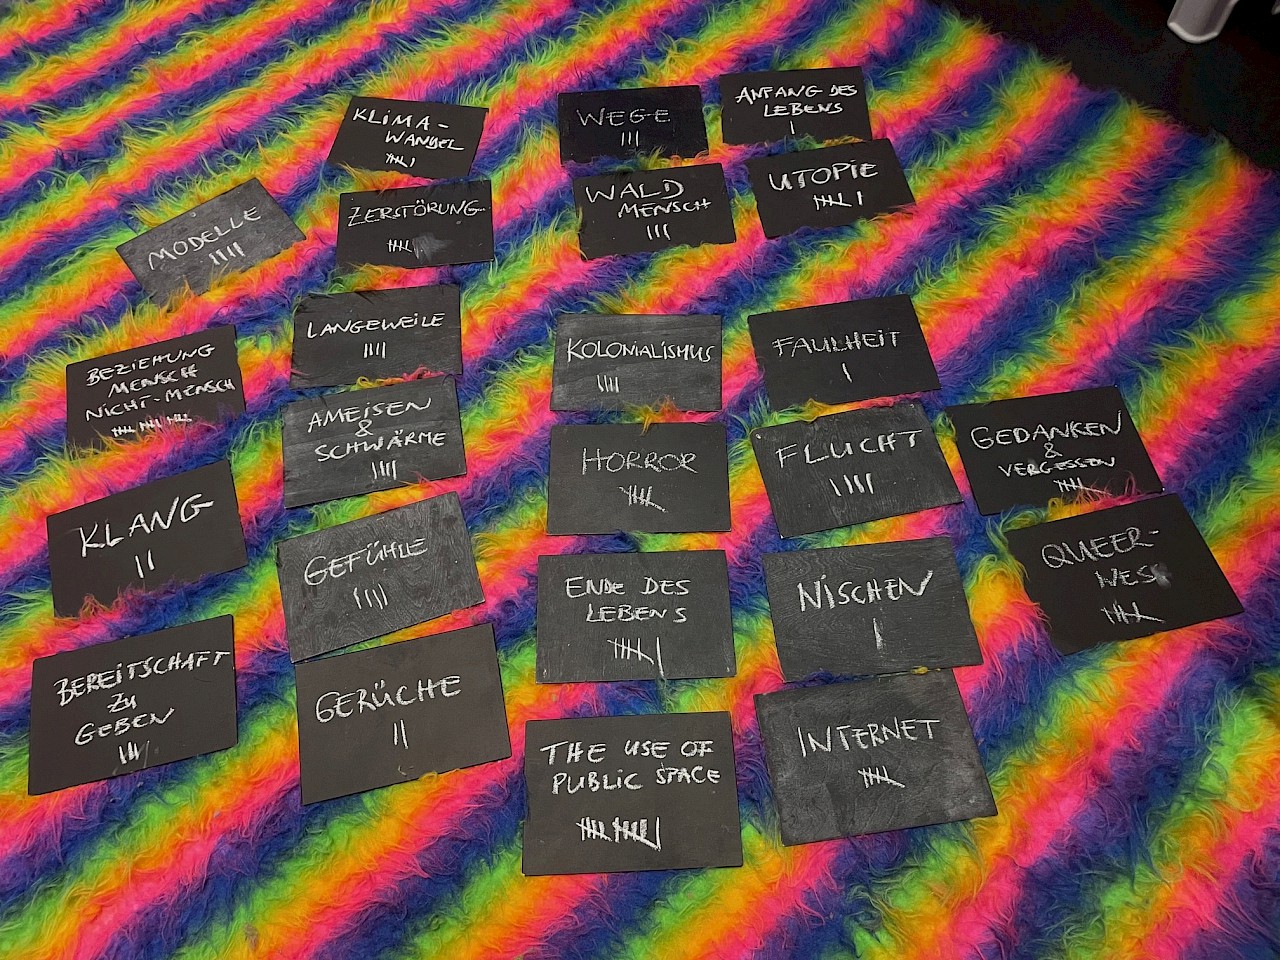 KLIMA-
WANDEL
WEGE
ANFANG DES
LEBENS
MODELLE
ZERSTÖRUNG
WALD
MENSCH
UTOPIE
BEZIEHUNG
MENSCH
NICHT-MENSCH
LANGEWEILE
KOLONIALISMUS
FAULHEIT
AMEISEN
&
SCHWÄRME
HORROR
FLUCHT
GEDANKEN
&
VERGESSEN
KLANG
GEFÜHLE
ENDE DES
LEBENS
NISCHEN
QUEER-
NESS
BEREITSCHAFT
ZU
GEBEN
GERÜCHE
THE USE OF
PUBLIC SPACE
INTERNET